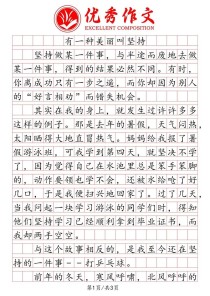 优秀作文
EXCELLENT COMPOSITION
有一种美丽叫坚持
坚持做某一件事，与半途而废地去做
某一件事，得到的结果必然不同。有时，
你离成功只有一步之遥，而你却因为别人
的“好言相劝”而错失机会。
其实在我的身上，就发生过许许多多
这样的例子。那是去年的暑假，天气闷热，
太阳晒得大地直冒热气。妈妈给我报了暑
假游泳班，可我学到第四天，就想放弃了，
因为觉得自己在水池里总是笨手笨脚
的，动作要领也学不会，还被水给呛了好
几口，于是我便扫兴地回家了。过了几天，
当我问起一块学习游泳的同学们时，得知
他们坚持学习已经顺利拿到毕业证书，而
我却两手空空。
与这个故事相反的，是我至今还在坚
持的一件事--打乒乓球。
前年的冬天，寒风呼啸，北风呼呼的
第1页 / 共3页